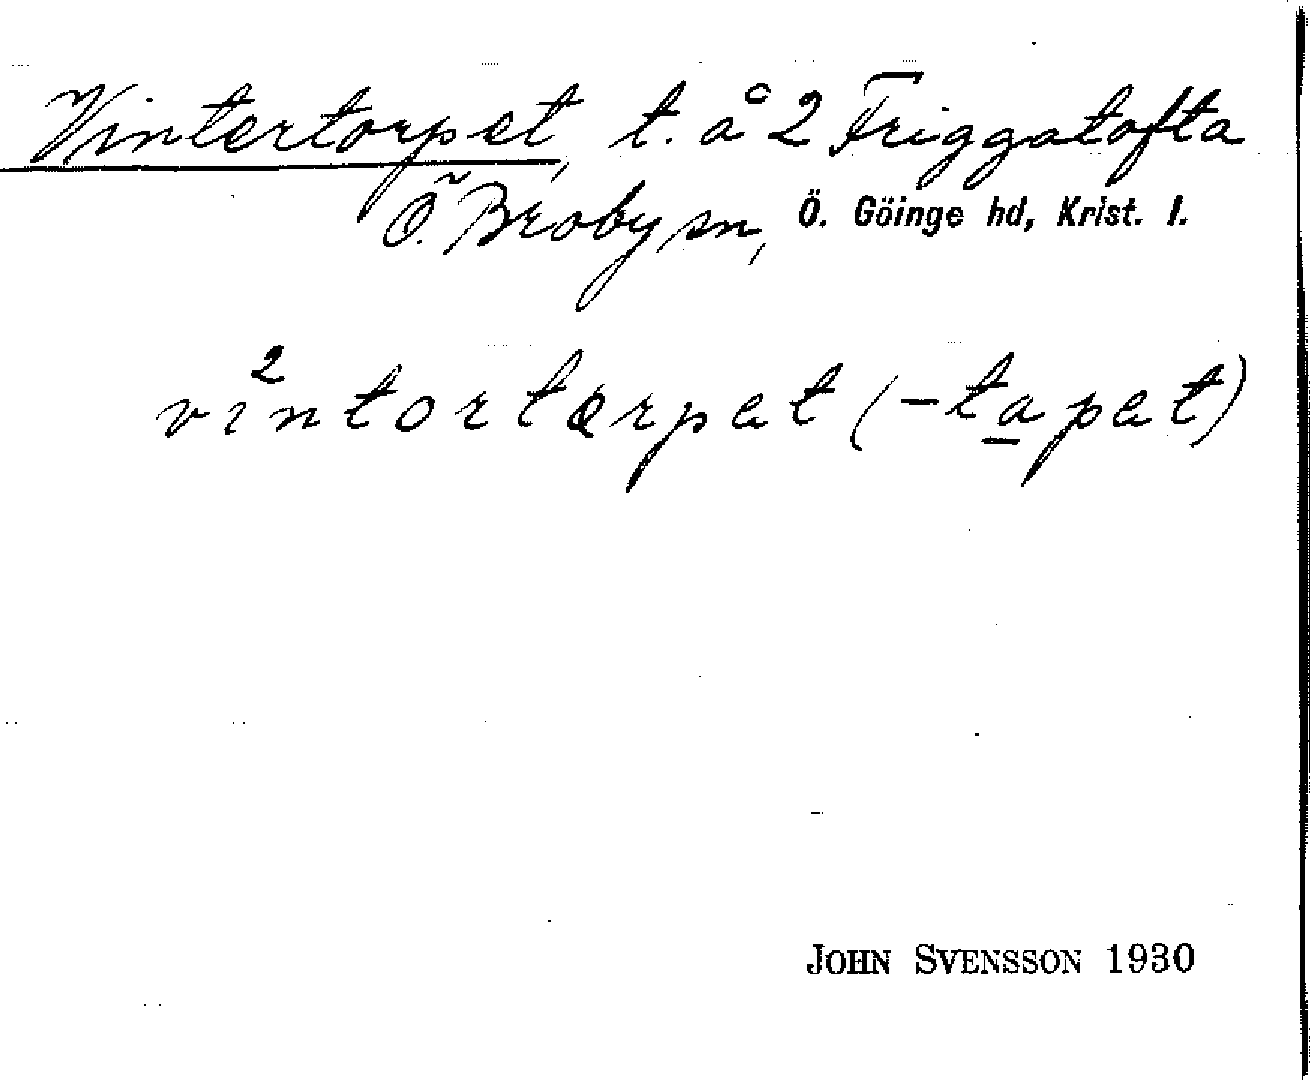 Vintertorpet, t. å 2 Friggatofta
Ö. Broby sn, Ö. Göinge hd, Krist. l.
vi²ntortærpet (-tapet)
JOHN SVENSSON 1930